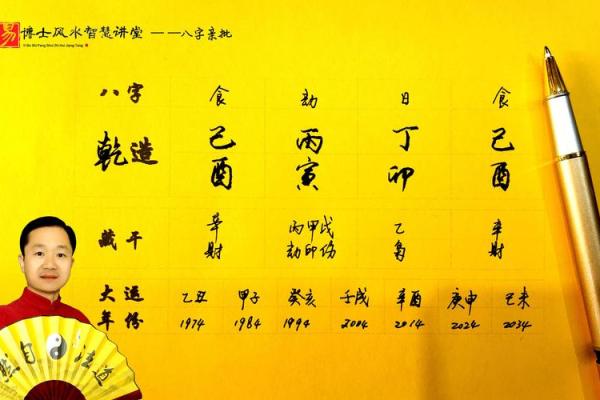 易 博士风水智慧讲堂 — —八字亲批
Yi Bo Shi Feng Shui Zhi Hui Jiang Tang
八字 食 劫 日 食
乾造 己 丙 丁 己
酉 寅 卯 酉
藏干 辛 丙甲戊 乙 辛
财 劫印伤 枭 财
大运 乙丑 甲子 癸亥 壬戌 辛酉 庚申 己未
年份 1974 1984 1994 2004 2014 2024 2034
然自法道